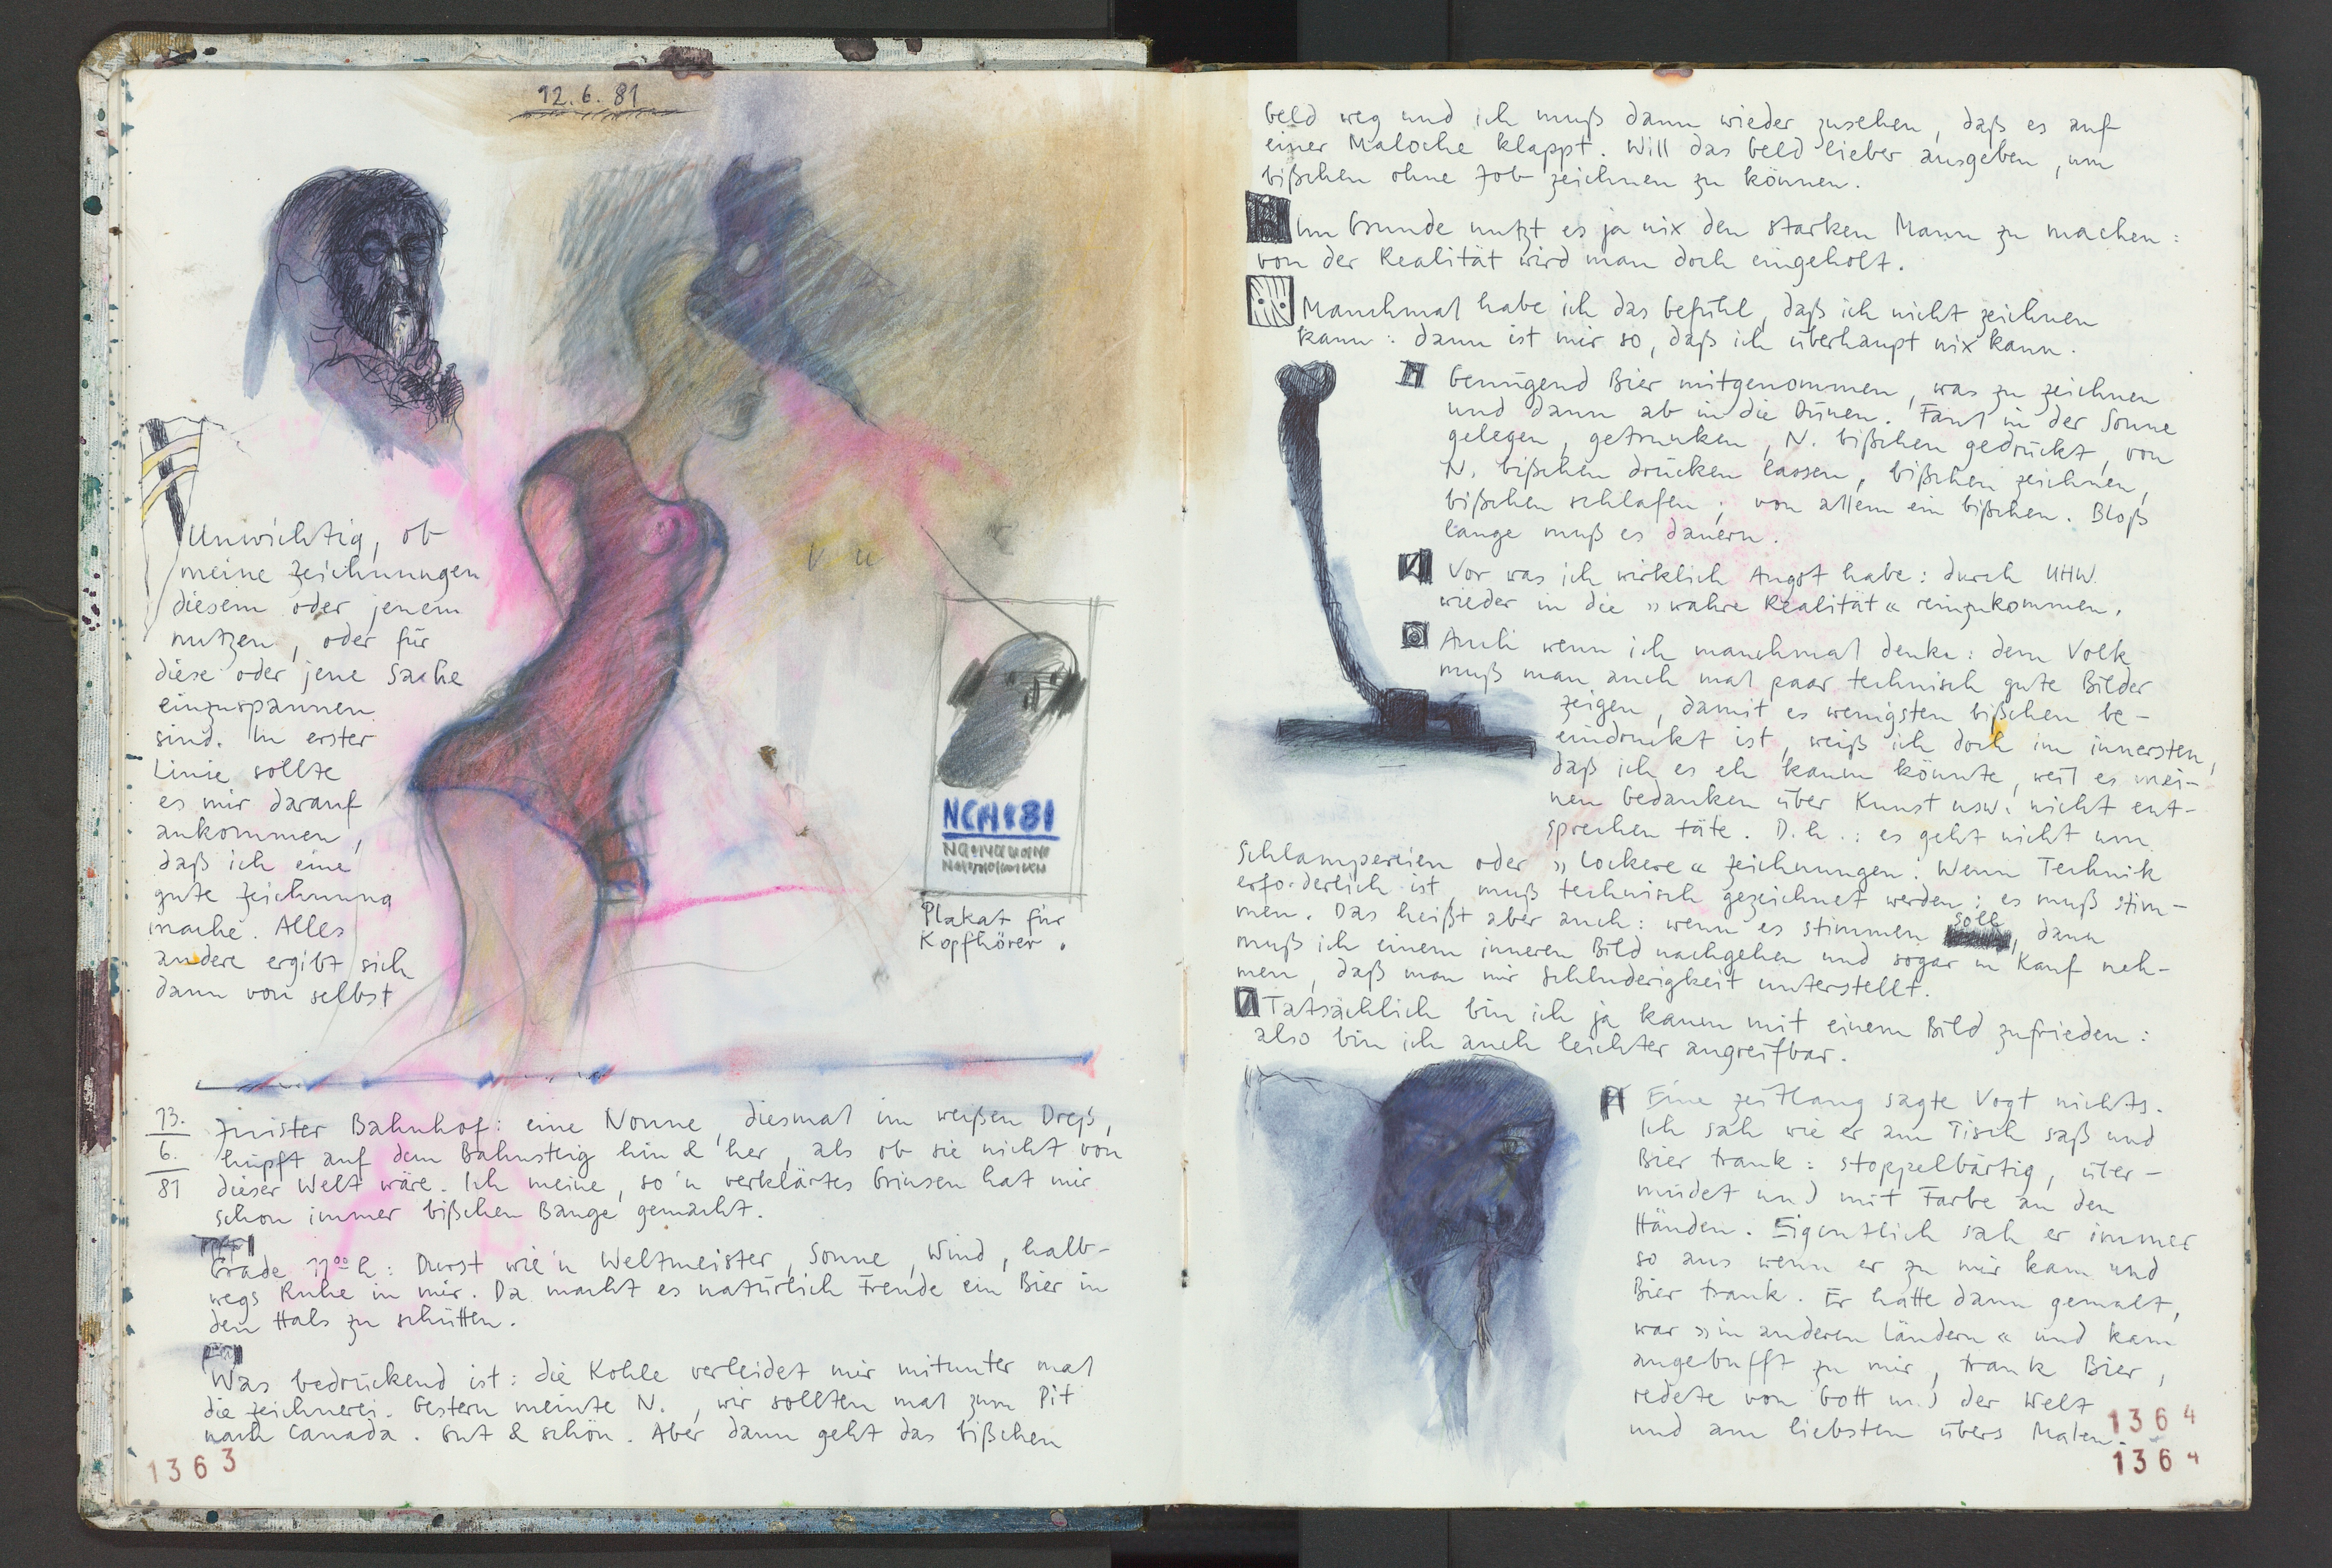 12.6.81
Unwichtig, ob
meine Zeichnungen
diesem oder jenem
nutzen, oder für
diese oder jene Sache
einzuspannen
sind. In erster
Linie sollte
es mir darauf
ankommen,
daß ich eine
gute Zeichnung
mache. Alles
andere ergibt sich
dann von selbst
Plakat für
Kopfhörer.
13.
6.
81
Bahnhof: eine Nonne, diesmal im weißen Dreß,
hüpft auf dem Bahnsteig hin & her, als ob sie nicht von
dieser Welt wäre. Ich meine, so'n verklärtes Grinsen hat mir
schon immer bißchen Bange gemacht.
Grade 11⁰⁰ h: Durst wie'n Weltmeister, Sonne, Wind, halb-
wegs Ruhe in mir. Da macht es natürlich Freude ein Bier in
den Hals zu schütten.
Was bedrückend ist: die Kohle verleidet mir mitunter mal
die Zeichnerei. Gestern meinte N., wir sollten mal zum Pit
nach Canada. Gut & schön. Aber dann geht das bißchen
1363
Geld weg und ich muß dann wieder zusehen, daß es auf
einer Maloche klappt. Will das Geld lieber ausgeben, um
bißchen ohne Job zeichnen zu können.
Im Grunde nutzt es ja nix den starken Mann zu machen:
von der Realität wird man doch eingeholt.
Manchmal habe ich das Gefühl, daß ich nicht zeichnen
kann: dann ist mir so, daß ich überhaupt nix kann.
Genügend Bier mitgenommen, was zu zeichnen
und dann ab in die Dünen. Faul in der Sonne
gelegen, getrunken, N. bißchen gedrückt, von
N. bißchen drücken lassen, bißchen zeichnen,
bißchen schlafen; von allem ein bißchen. Bloß
lange muß es dauern.
Vor was ich wirklich Angst habe: durch UHW
wieder in die »wahre Realität« reinzukommen.
Auch wenn ich manchmal denke: dem Volk
muß man auch mal paar technisch gute Bilder
zeigen, damit es wenigsten bißchen be-
eindruckt ist, weiß ich doch im innersten,
daß ich es eh kaum könnte, weil es mei-
nen Gedanken über Kunst usw. nicht ent-
sprechen täte. D.h.: es geht nicht um
Schlampereien oder »lockere« Zeichnungen: Wenn Technik
erforderlich ist, muß technisch gezeichnet werden; es muß stim-
men. Das heißt aber auch: wenn es stimmen soll, dann
muß ich einem inneren Bild nachgehen und sogar in Kauf neh-
men, daß man mir Schluderigkeit unterstellt.
Tatsächlich bin ich ja kaum mit einem Bild zufrieden:
also bin ich auch leichter angreifbar.
Eine zeitlang sagte Vogt nichts.
Ich sah wie er am Tisch saß und
Bier trank: stoppelbärtig, über-
müdet und mit Farbe an den
Händen. Eigentlich sah er immer
so aus wenn er zu mir kam und
Bier trank. Er hatte dann gemalt,
war »in anderen Ländern« und kam
angebufft zu mir, trank Bier,
redete von Gott und der Welt
und am liebsten übers Malen.
1364
1364